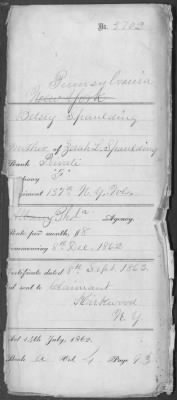 No. 5702
Pennsylvania
New York
Betsey Spaulding
Mother of Zarah L. Spaulding
Rank Private
pany "F"
giment 137th N.Y. Vols.
Phda Agency.
Rate per month, $8
commencing 8th Dec. 1862
Certificate dated 8th Sept. 1863.
and sent to Claimant
Kirkwood
N.Y.
Act 14th July, 1862.
Book A Vol. 4 Page 93